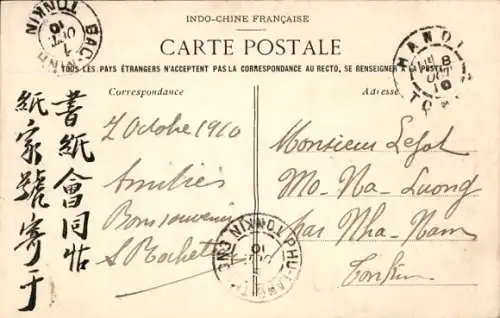 INDO-CHINE FRANÇAISE
CARTE POSTALE
TOUS LES PAYS ÉTRANGERS N'ACCEPTENT PAS LA CORRESPONDANCE AU RECTO, SE RENSEIGNER A LA POSTE
Correspondance
Adresse
BAC-NINH TONKIN
1 OCT 10
HANOI
8 OCT 10
TONKIN
書紙會同帖
紙家號寄于
7 Octobre 1910
Amitiés
Bons souvenirs
S Rochette
Monsieur Lefol
Mo-Na-Luong
par Nha-Nam
Tonkin
PHU-LANG-THUONG TONKIN